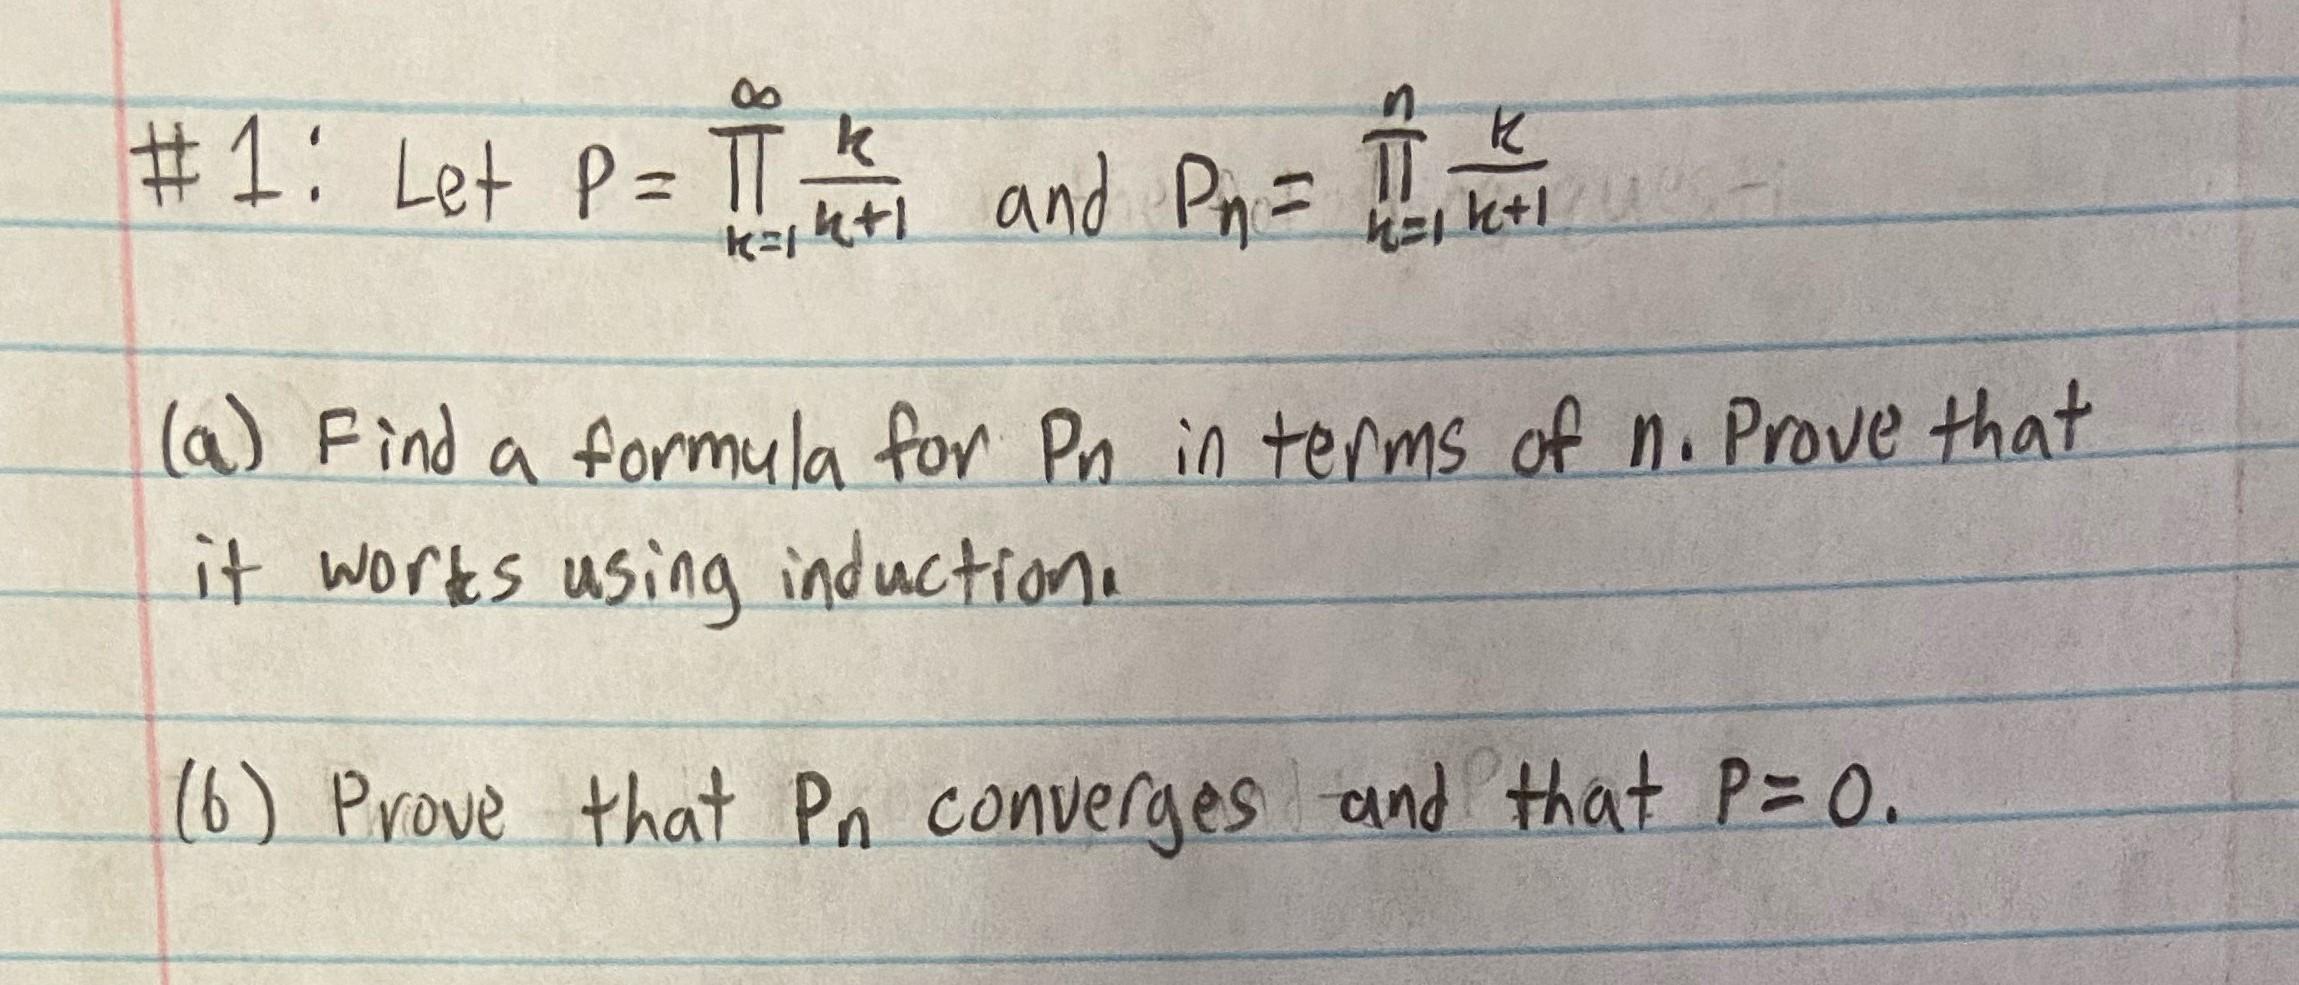 #1: Let P = ∞∏k=1 k/k+1 and Pn = n∏k=1 k/k+1
(a) Find a formula for Pn in terms of n. Prove that
it works using induction.
(b) Prove that Pn converges and that P = 0.